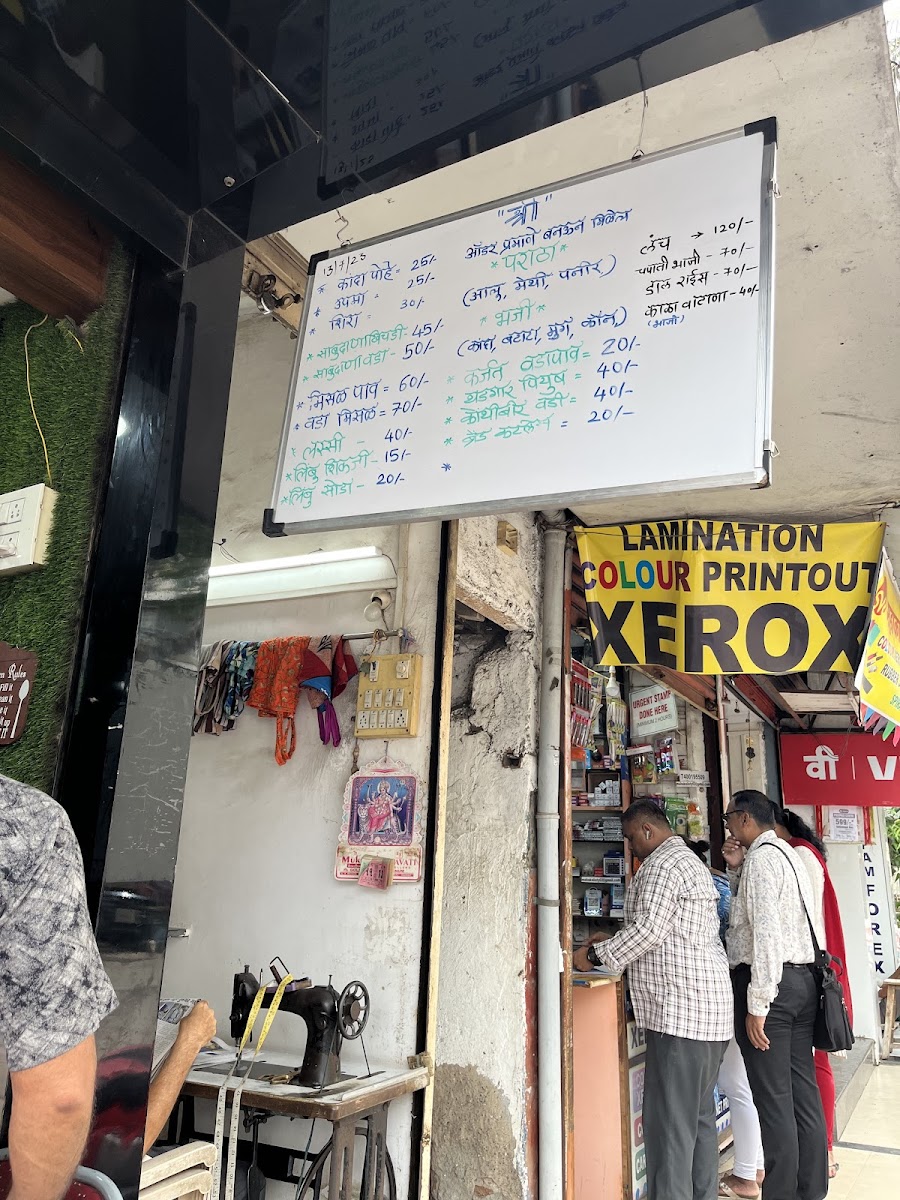 "श्री"
13/7/23
* कांदा पोहे = 25/-
* उपमा = 25/-
* शिरा = 30/-
* साबुदाणा खिचडी - 45/-
* साबुदाणा वडा - 50/-
* मिसळ पाव = 60/-
* वडा मिसळ = 70/-
* लस्सी - 40/-
* लिंबु शिकंजी - 15/-
* लिंबु सोडा - 20/-
ऑर्डर प्रमाणे बनऊन मिळेल
* पराठा *
(आलु, मेथी, पनीर,)
* भजी *
(कांदा, बटाटा, मुग, कॉर्न,)
* कर्जत वडापाव = 20/-
* पियुष = 40/-
* कोथींबीर वडी = 40/-
* ब्रेड कटलेस = 20/-
*
लंच → 120/-
चपाती भाजी - 70/-
डाल राईस - 70/-
काळा वाटाना - 40/-
(भाजी)
LAMINATION
COLOUR PRINTOUT
XEROX
URGENT STAMP
DONE HERE
वी | V
AMFOREX